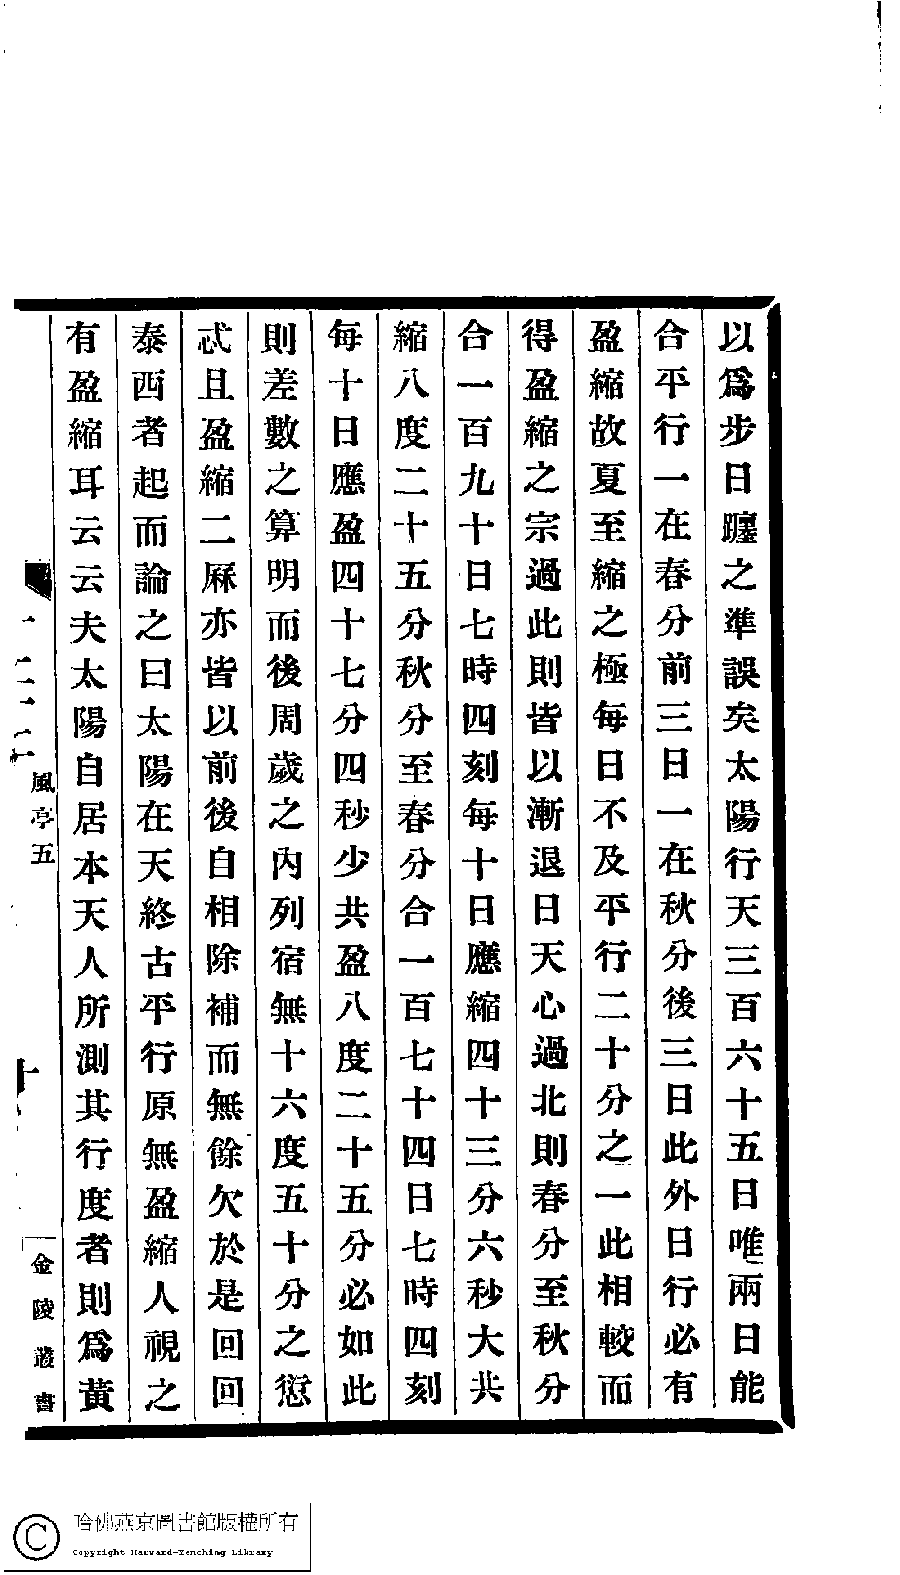 以爲步日躔之準誤矣太陽行天三百六十五日唯兩日能
合平行一在春分前三日一在秋分後三日此外日行必有
盈縮故夏至縮之極每日不及平行二十分之一此相較而
得盈縮之宗過此則皆以漸退日天心過北則春分至秋分
合一百九十日七時四刻每十日應縮四十三分六秒大共
縮八度二十五分秋分至春分合一百七十四日七時四刻
每十日應盈四十七分四秒少共盈八度二十五分必如此
則差數之算明而後周歲之內列宿無十六度五十分之愆
忒且盈縮二厤亦皆以前後自相除補而無餘欠於是回回
泰西者起而論之曰太陽在天終古平行原無盈縮人視之
有盈縮耳云云夫太陽自居本天人所測其行度者則爲黃
風亭五
十
金陵叢書
哈佛燕京圖書館版權所有
Copyright Harvard-Yenching Library